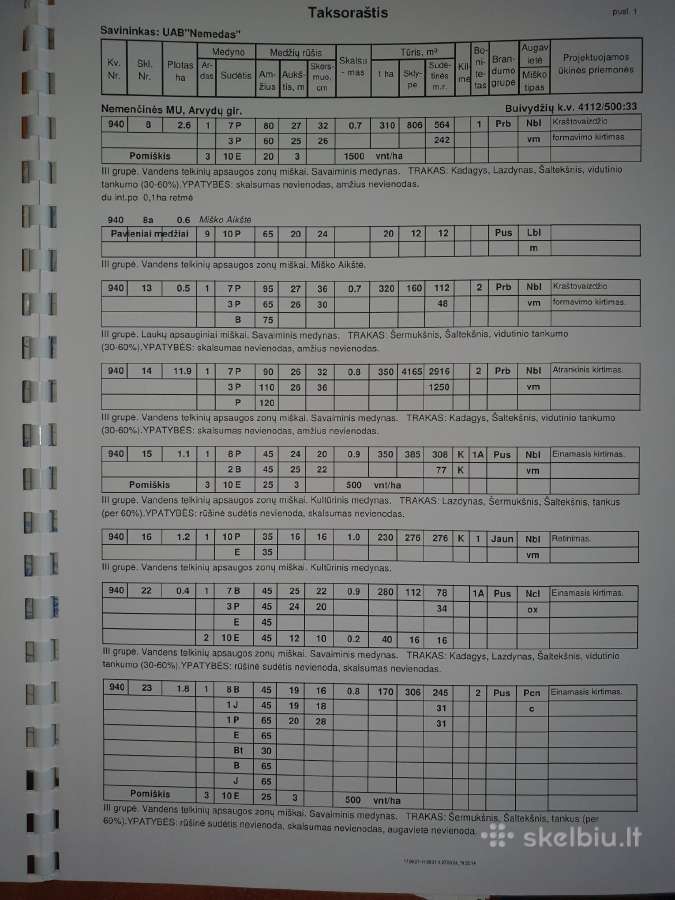 Taksoraštis
pusl. 1
Savininkas: UAB"Nemedas"
Kv. Nr. Skl. Nr. Plotas ha Medyno Ar-das Sudėtis Medžių rūšis Am-žius Aukš-tis, m Skers-muo, cm Skalsu-mas Tūris, m³ 1 ha Skly-pe Sudė-tinės m.r. Kil-mė Bo-ni-te-tas Bran-dumo grupė Augav ietė Miško tipas Projektuojamos ūkinės priemonės
Nemenčinės MU, Arvydų gir. Buivydžių k.v. 4112/500:33
940 8 2.6 1 7 P 80 27 32 0.7 310 806 564 1 Prb Nbl Kraštovaizdžio
3 P 60 25 26 242 vm formavimo kirtimas.
Pomiškis 3 10 E 20 3 1500 vnt/ha
III grupė. Vandens telkinių apsaugos zonų miškai. Savaiminis medynas. TRAKAS: Kadagys, Lazdynas, Šaltekšnis, vidutinio
tankumo (30-60%).YPATYBĖS: skalsumas nevienodas, amžius nevienodas.
du int.po 0,1ha retmė
940 8a 0.6 Miško Aikštė
Pavieniai medžiai 9 10 P 65 20 24 20 12 12 Pus Lbl
m
III grupė. Vandens telkinių apsaugos zonų miškai. Miško Aikštė.
940 13 0.5 1 7 P 95 27 36 0.7 320 160 112 2 Prb Nbl Kraštovaizdžio
3 P 65 26 30 48 vm formavimo kirtimas.
B 75
III grupė. Laukų apsauginiai miškai. Savaiminis medynas. TRAKAS: Šermukšnis, Šaltekšnis, vidutinio tankumo
(30-60%).YPATYBĖS: skalsumas nevienodas, amžius nevienodas.
940 14 11.9 1 7 P 90 26 32 0.8 350 4165 2916 2 Prb Nbl Atrankinis kirtimas.
3 P 110 28 36 1250 vm
P 120
III grupė. Vandens telkinių apsaugos zonų miškai. Savaiminis medynas. TRAKAS: Kadagys, Šaltekšnis, vidutinio tankumo
(30-60%).YPATYBĖS: skalsumas nevienodas, amžius nevienodas.
940 15 1.1 1 8 P 45 24 20 0.9 350 385 308 K 1A Pus Nbl Einamasis kirtimas.
2 B 45 25 22 77 K vm
Pomiškis 3 10 E 25 3 500 vnt/ha
III grupė. Vandens telkinių apsaugos zonų miškai. Kultūrinis medynas. TRAKAS: Lazdynas, Šermukšnis, Šaltekšnis, tankus
(per 60%).YPATYBĖS: rūšinė sudėtis nevienoda, skalsumas nevienodas.
940 16 1.2 1 10 P 35 16 16 1.0 230 276 276 K 1 Jaun Nbl Retinimas.
E 35 vm
III grupė. Vandens telkinių apsaugos zonų miškai. Kultūrinis medynas.
940 22 0.4 1 7 B 45 25 22 0.9 280 112 78 1A Pus Ncl Einamasis kirtimas.
3 P 45 24 20 34 ox
E 45
2 10 E 45 12 10 0.2 40 16 16
III grupė. Vandens telkinių apsaugos zonų miškai. Savaiminis medynas. TRAKAS: Kadagys, Lazdynas, Šaltekšnis, vidutinio
tankumo (30-60%).YPATYBĖS: rūšinė sudėtis nevienoda, skalsumas nevienodas.
940 23 1.8 1 8 B 45 19 16 0.8 170 306 245 2 Pus Pcn Einamasis kirtimas.
1 J 45 19 18 31 c
1 P 65 20 28 31
E 65
Bt 30
B 65
J 65
Pomiškis 3 10 E 25 3 500 vnt/ha
III grupė. Vandens telkinių apsaugos zonų miškai. Savaiminis medynas. TRAKAS: Šermukšnis, Šaltekšnis, tankus (per
60%).YPATYBĖS: rūšinė sudėtis nevienoda, skalsumas nevienodas, augavietė nevienoda.
skelbiu.lt